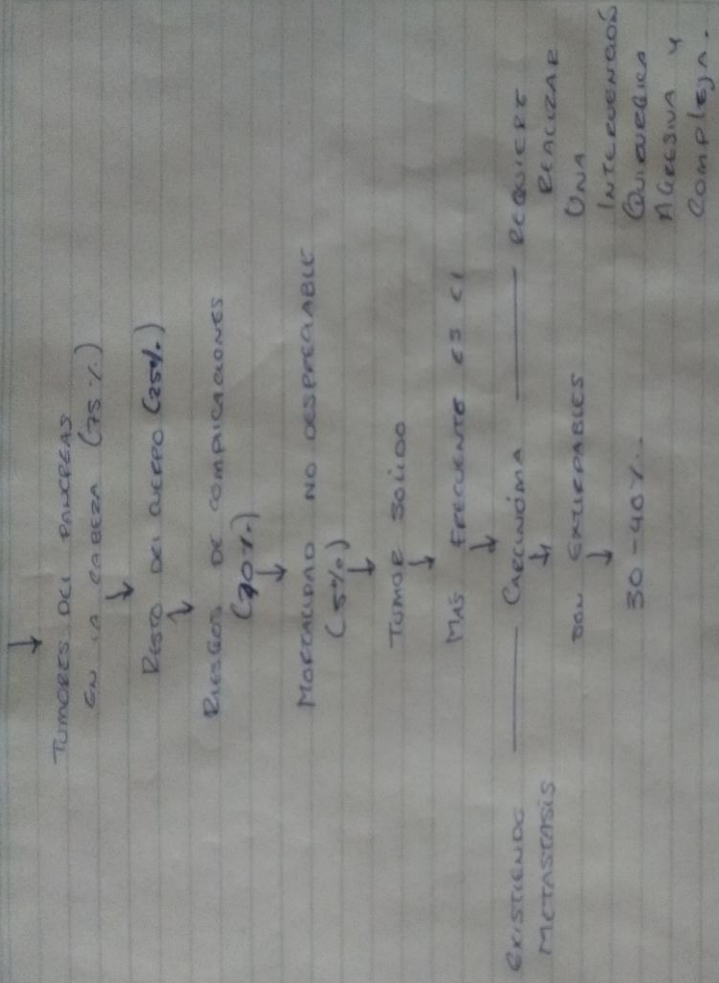 ↓
TUMORES DEL PANCREAS
EN LA CABEZA (75%.)
↓
RESTO DEL CUERPO (25%.)
↓
RIESGOS DE COMPLICACIONES
(70%.)
↓
MORTALIDAD NO DESPRECIABLE
(5%.)
↓
TUMOR SOLIDO
↓
MAS FRECUENTE ES EL
↓
EXISTIENDO ——— CARCINOMA ——— REQUIERE
METASTASIS
REALIZAR
UNA
INTERVENCIÓN
QUIRURGICA
AGRESIVA Y
COMPLEJA.
↓
SON EXTIRPABLES
↓
30 - 40%.